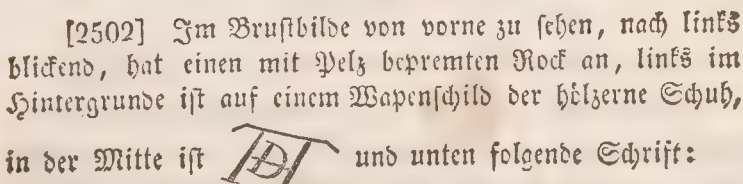 [2502] Im Brustbilde von vorne zu sehen, nach links
blickend, hat einen mit Pelz bepremten Rock an, links im
Hintergrunde ist auf einem Wapenschild der hölzerne Schuh,
in der Mitte ist AD und unten folgende Schrift: